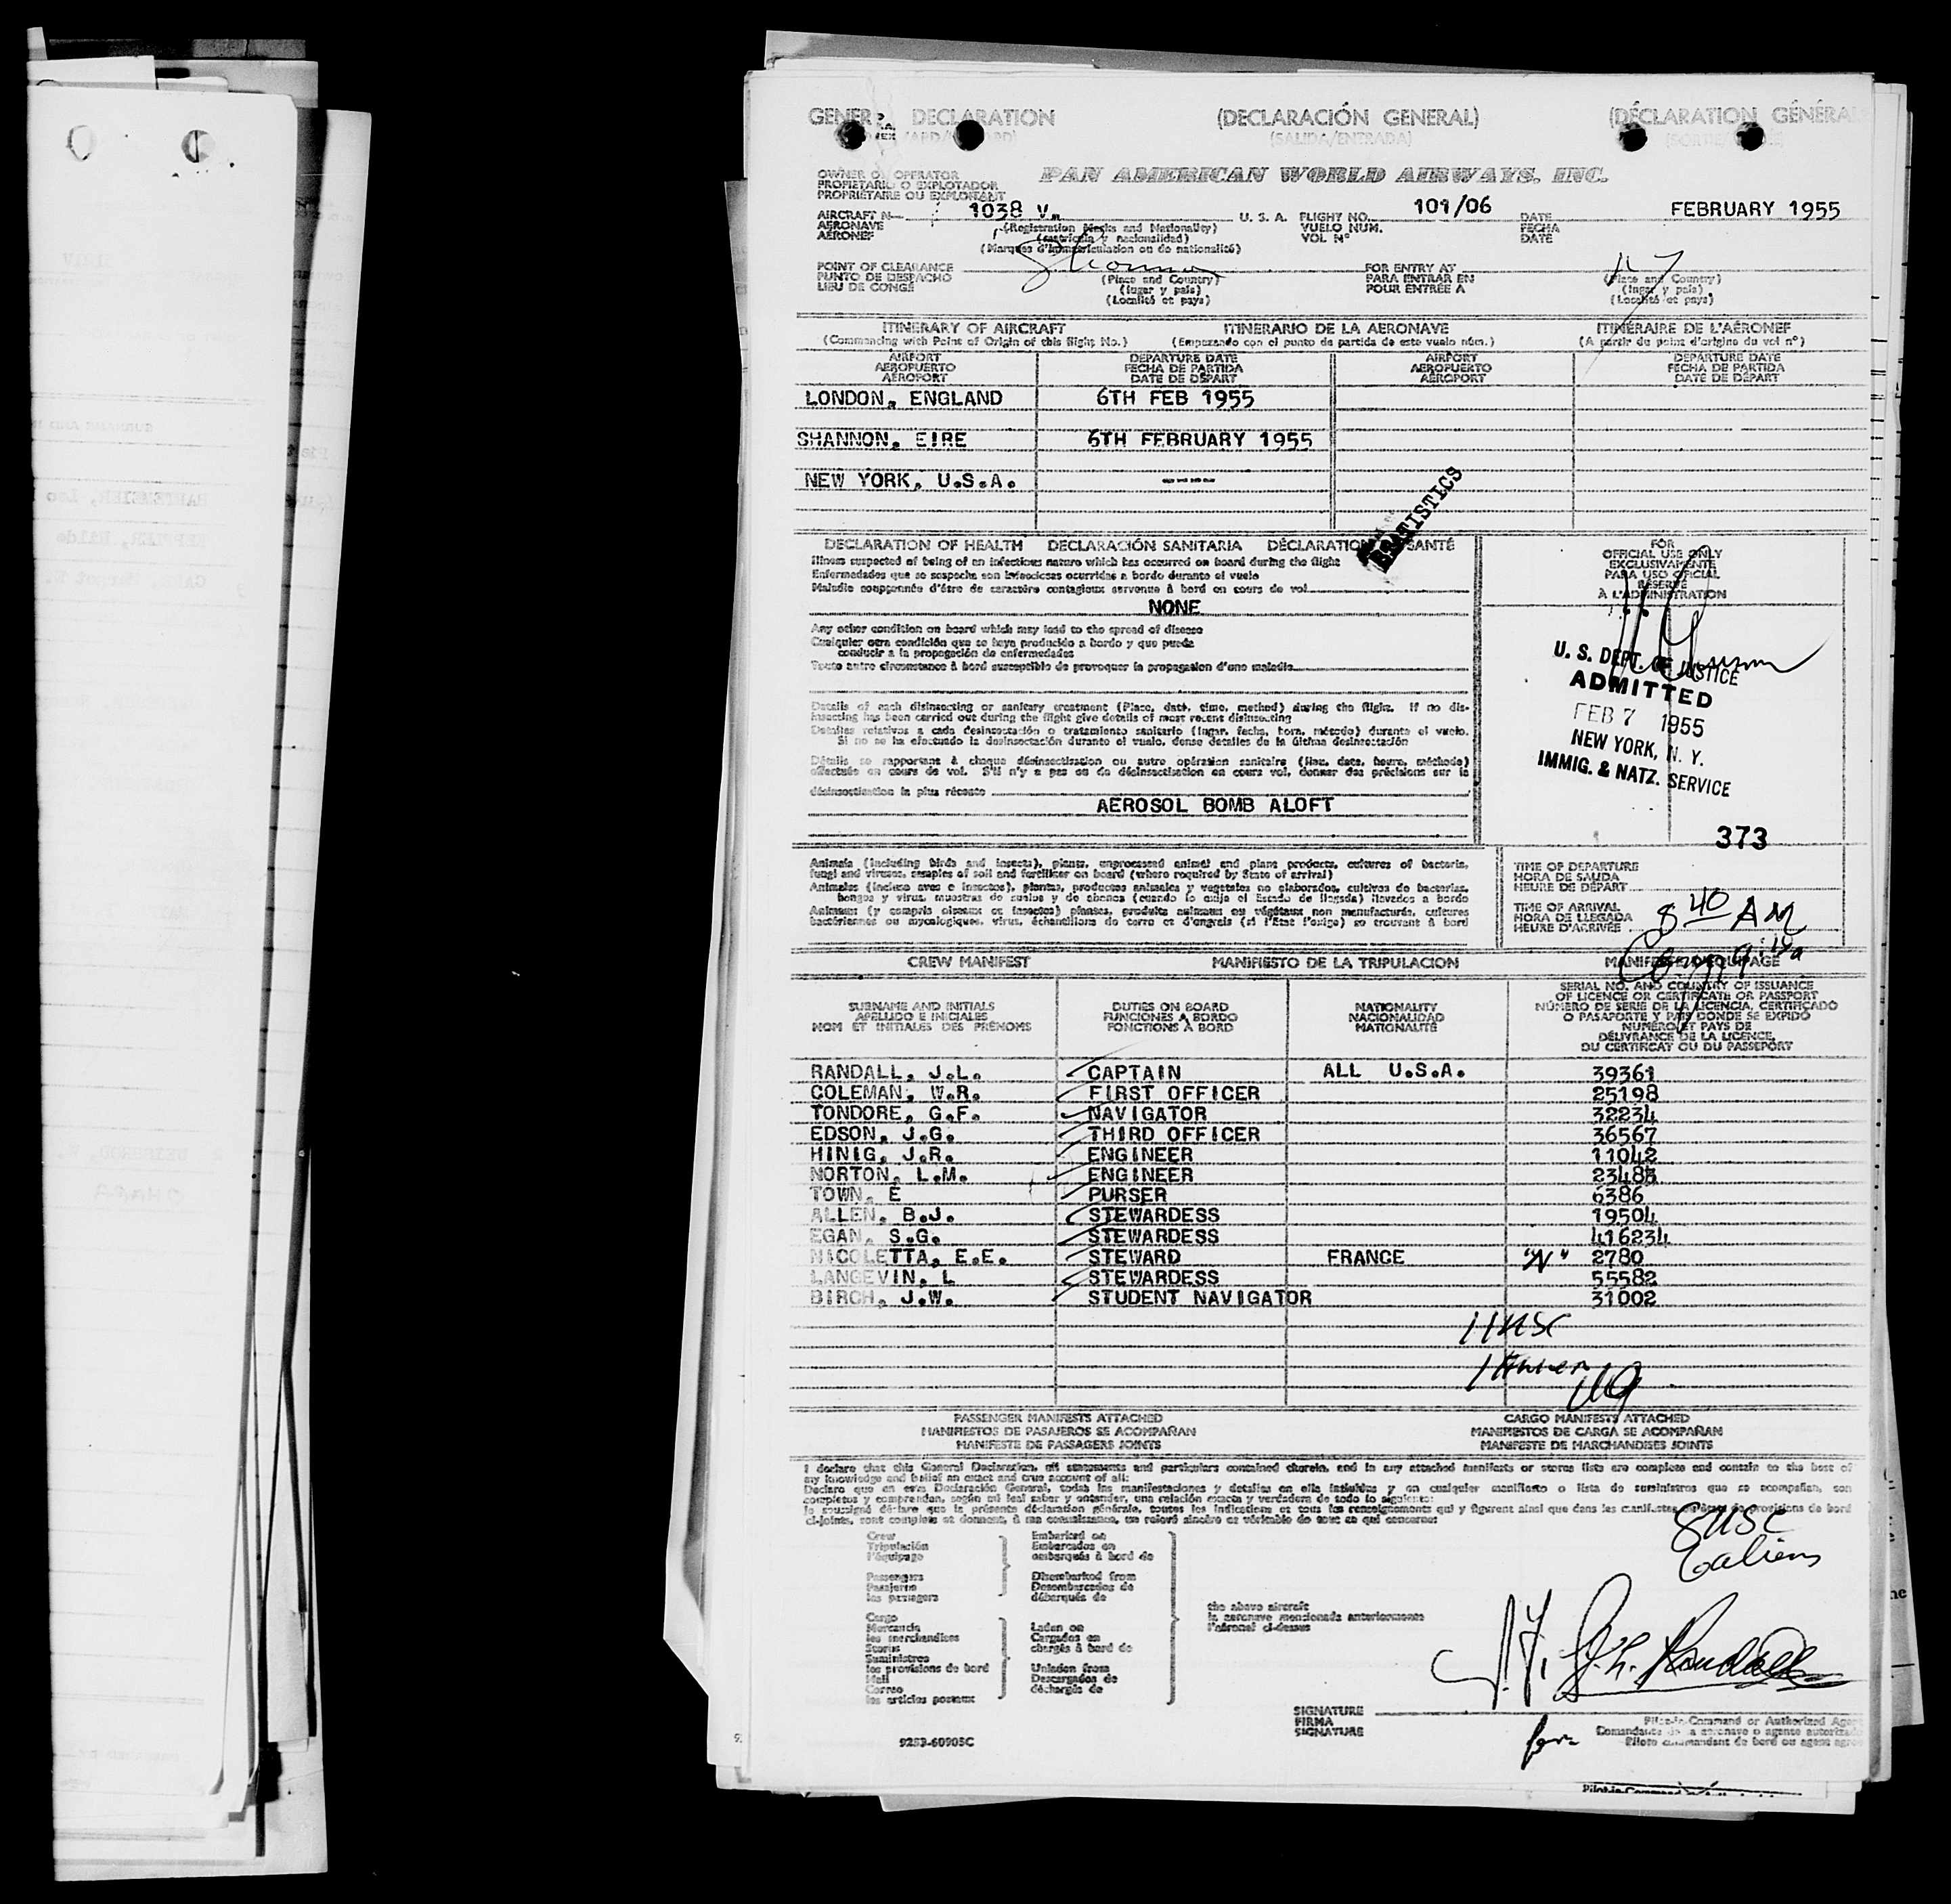 GENERAL DECLARATION (DECLARACIÓN GENERAL) (DÉCLARATION GÉNÉRALE
(SALIDA/ENTRADA)
OWNER OR OPERATOR
PROPIETARIO O EXPLOTADOR
PROPRIÉTAIRE OU EXPLOITANT
PAN AMERICAN WORLD AIRWAYS, INC.
AIRCRAFT N 1038 V. U. S. A. FLIGHT NO. 101/06 DATE FEBRUARY 1955
AERONAVE VUELO NUM. FECHA
AÉRONEF VOL Nº DATE
(Registration Marks and Nationality)
(matrícula y nacionalidad)
(Marques d'immatriculation ou de nationalité)
POINT OF CLEARANCE Shannon FOR ENTRY AT NY
PUNTO DE DESPACHO PARA ENTRAR EN
LIEU DE CONGÉ POUR ENTRÉE A
(Place and Country) (Place and Country)
(lugar y pais) (lugar y pais)
(Localité et pays) (Localité et pays)
ITINERARY OF AIRCRAFT ITINERARIO DE LA AERONAVE ITINÉRAIRE DE L'AÉRONEF
(Commencing with Point of Origin of this flight No.) (Empezando con el punto de partida de este vuelo núm.) (A partir du point d'origine du vol nº)
AIRPORT DEPARTURE DATE AIRPORT DEPARTURE DATE
AEROPUERTO FECHA DE PARTIDA AEROPUERTO FECHA DE PARTIDA
AÉROPORT DATE DE DÉPART AÉROPORT DATE DE DÉPART
LONDON, ENGLAND 6TH FEB 1955
SHANNON, EIRE 6TH FEBRUARY 1955
NEW YORK, U.S.A. ----
STATISTICS
DECLARATION OF HEALTH DECLARACIÓN SANITARIA DÉCLARATION SANTÉ
Illness suspected of being of an infectious nature which has occurred on board during the flight
Enfermedades que se sospecha son infecciosas ocurridas a bordo durante el vuelo
Maladie soupçonnée d'être de caractère contagieux survenue à bord en cours de vol
NONE
Any other condition on board which may lead to the spread of disease
Cualquier otra condición que se haya producido a bordo y que puede
conducir a la propagación de enfermedades
Toute autre circonstance à bord susceptible de provoquer la propagation d'une maladie
Details of each disinsecting or sanitary treatment (Place, date, time, method) during the flight. If no dis-
insecting has been carried out during the flight give details of most recent disinsecting
Detalles relativos a cada desinsectación o tratamiento sanitario (lugar, fecha, hora, método) durante el vuelo.
Si no se ha efectuado la desinsectación durante el vuelo, dense detalles de la última desinsectación
Détails se rapportant à chaque désinsectisation ou autre opération sanitaire (lieu, date, heure, méthode)
effectuée en cours de vol. S'il n'y a pas eu de désinsectisation en cours vol, donner des précisions sur la
désinsectisation la plus récente
AEROSOL BOMB ALOFT
FOR
OFFICIAL USE ONLY
EXCLUSIVAMENTE
PARA USO OFICIAL
RÉSERVÉ
À L'ADMINISTRATION
U. S. DEPT. OF JUSTICE
ADMITTED
FEB 7 1955
NEW YORK, N. Y.
IMMIG. & NATZ. SERVICE
373
Animals (including birds and insects), plants, unprocessed animal and plant products, cultures of bacteria,
fungi and viruses, samples of soil and fertilizer on board (where required by State of arrival)
Animales (incluso aves e insectos), plantas, productos animales y vegetales no elaborados, cultivos de bacterias,
hongos y virus, muestras de suelos y de abonos (cuando lo exija el Estado de llegada) llevados a bordo
Animaux (y compris oiseaux et insectes) plantes, produits animaux ou végétaux non manufacturés, cultures
bactériennes ou mycologiques, virus, échantillons de terre et d'engrais (si l'État l'exige) se trouvant à bord
TIME OF DEPARTURE
HORA DE SALIDA
HEURE DE DÉPART
TIME OF ARRIVAL
HORA DE LLEGADA
HEURE D'ARRIVÉE
8 40 AM
CREW MANIFEST MANIFIESTO DE LA TRIPULACION
SURNAME AND INITIALS
APELLIDO E INICIALES
NOM ET INITIALES DES PRÉNOMS
DUTIES ON BOARD
FUNCIONES A BORDO
FONCTIONS À BORD
NATIONALITY
NACIONALIDAD
NATIONALITÉ
SERIAL NO. AND COUNTRY OF ISSUANCE
OF LICENCE OR CERTIFICATE OR PASSPORT
NÚMERO DE SERIE DE LA LICENCIA, CERTIFICADO
O PASAPORTE Y PAIS DONDE SE EXPIDÓ
NUMÉRO ET PAYS DE
DÉLIVRANCE DE LA LICENCE,
DU CERTIFICAT OU DU PASSEPORT
RANDALL, J.L. CAPTAIN ALL U.S.A. 39361
COLEMAN, W.R. FIRST OFFICER 25198
TONDORE, G.F. NAVIGATOR 32234
EDSON, J.G. THIRD OFFICER 36567
HINIG, J.R. ENGINEER 11042
NORTON, L.M. ENGINEER
TOWN, E PURSER 6386
ALLEN, B.J. STEWARDESS 19504
EGAN, S.G. STEWARDESS 416234
NICOLETTA, E.E. STEWARD FRANCE "N" 2780
LANGEVIN, L STEWARDESS 55582
BIRCH, J.W. STUDENT NAVIGATOR 31002
11 USC
PASSENGER MANIFESTS ATTACHED CARGO MANIFESTS ATTACHED
MANIFIESTOS DE PASAJEROS SE ACOMPAÑAN MANIFIESTOS DE CARGA SE ACOMPAÑAN
MANIFESTE DE PASSAGERS JOINTS MANIFESTE DE MARCHANDISES JOINTS
I declare that this General Declaration, all statements and particulars contained therein, and in any attached manifests or stores lists are complete and contain to the best of
my knowledge and belief an exact and true account of all:
Declaro que en esta Declaración General, todas las manifestaciones y detalles en ella incluidos y en cualquier manifiesto o lista de suministros que se acompañan, son
completos y comprenden, según mi leal saber y entender, una relación exacta y verdadera de todo lo siguiente:
8 USC
6 aliens
Crew
Tripulación
l'équipage
Passengers
Pasajeros
les passagers
Embarked on
Embarcados en
embarqués à bord de
Disembarked from
Desembarcados de
débarqués de
Cargo
Mercancía
les merchandises
Stores
Suministros
les provisions de bord
Mail
Correo
les articles postaux
Laden on
Cargados en
chargés à bord de
Unladen from
Descargados de
déchargés de
the above aircraft
la aeronave mencionada anteriormente
l'aéronef ci-dessus
J.L. Randall
SIGNATURE
FIRMA
SIGNATURE
for
Pilot-in-Command or Authorized Agent
9253-60905C